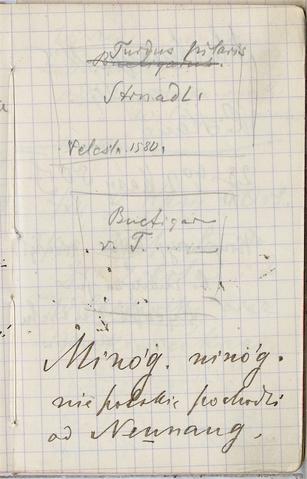 Turdus pilaris
Buctigarius.
Strnadl.
Velesl. 1580.
Buctigar
v. T.
Minóg. ninóg.
nie polskie pochodzi
od Neunaug.